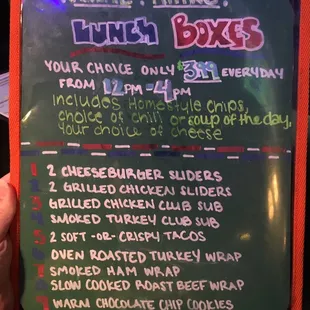 LUNCH BOXES
YOUR CHOICE ONLY $3.99 EVERYDAY
FROM 12PM-4PM
includes Homestyle chips,
choice of chili or soup of the day,
your choice of cheese
2 CHEESEBURGER SLIDERS
2 GRILLED CHICKEN SLIDERS
GRILLED CHICKEN CLUB SUB
SMOKED TURKEY CLUB SUB
2 SOFT -OR- CRISPY TACOS
OVEN ROASTED TURKEY WRAP
SMOKED HAM WRAP
SLOW COOKED ROAST BEEF WRAP
WARM CHOCOLATE CHIP COOKIES